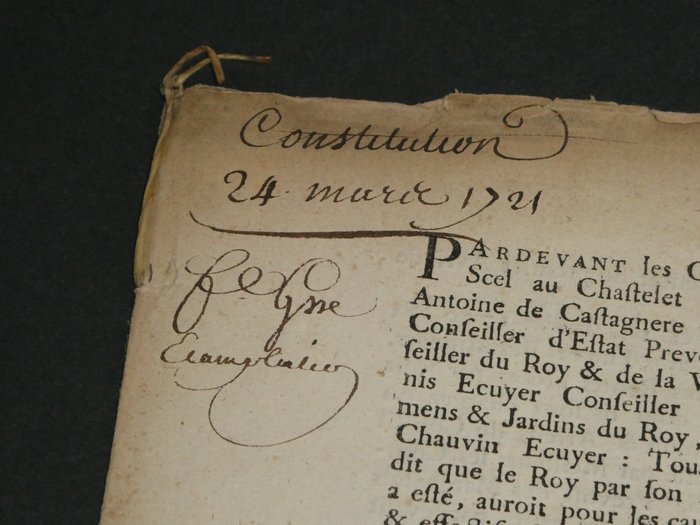 Constitution
24. mars 1721
PARDEVANT les C
Scel au Chastelet
Antoine de Castagnere
Conseiller d'Estat Prev
seiller du Roy & de la V
nis Ecuyer Conseiller
mens & Jardins du Roy,
Chauvin Ecuyer : Tou
dit que le Roy par son
a esté, auroit pour les ca